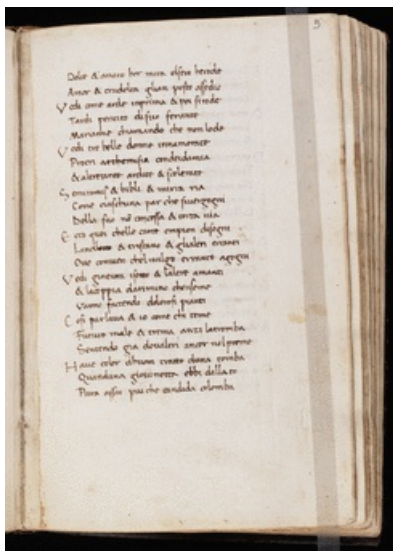 5
Dolce & amaro hor mira el fero herode
Amor & crudelta gliam posto assedio
Vedi come arde imprima & poi si rode
Tardi pentito di sua feritate
Marianne chiamando che non lode
Vedi tre belle donne innamorate
Procri arthemisia condeidamia
& altretante ardite & scelerate
Semiramis & bibli & mirra ria
Come ciascuna par che si uergogni
Della sua nõ concessa & torta uia
Ecco quei chelle carte empion disogni
& tristano & glialtri erranti
Oue conuien chel uulgo errante agogni
Vedi gineura isotta & laltre amanti
& la coppia darimino chenseme
Vanno facendo dolorosi pianti
Cosi parlaua & io come chi teme
Futuro male & trema anzi la tromba
Sentendo gia doualtri ancor nol preme
Hauea color dhuom tratto duna tomba
Quanduna giouinetta ebbi dallato
Pura assai piu che candida colomba